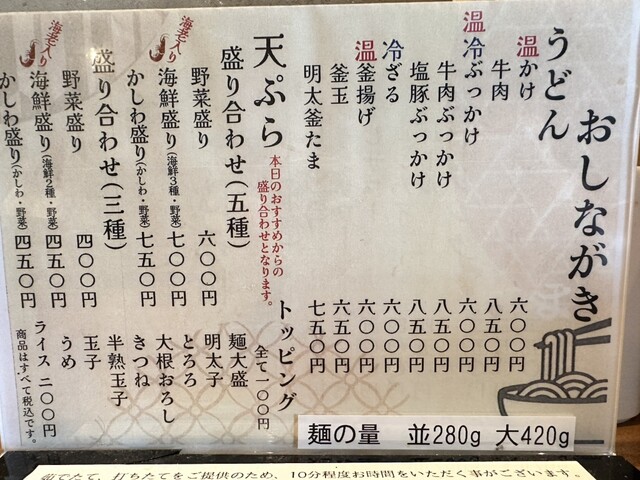 おしながき
うどん
温 かけ 六〇〇円
牛肉 八五〇円
温 冷 ぶっかけ 六〇〇円
牛肉ぶっかけ 八五〇円
塩豚ぶっかけ 八五〇円
冷 ざる 六〇〇円
温 釜揚げ 六〇〇円
釜玉 六五〇円
明太釜たま 七五〇円
天ぷら
本日のおすすめからの
盛り合わせとなります。
盛り合わせ(五種)
野菜盛り 六〇〇円
海老入り
海鮮盛り(海鮮3種・野菜) 七〇〇円
かしわ盛り(かしわ・野菜) 七五〇円
盛り合わせ(三種)
野菜盛り 四〇〇円
海老入り
海鮮盛り(海鮮2種・野菜) 四五〇円
かしわ盛り(かしわ・野菜) 四五〇円
トッピング
全て一〇〇円
麺大盛
明太子
とろろ
大根おろし
きつね
半熟玉子
玉子
うめ
ライス 二〇〇円
商品はすべて税込です。
麺の量 並280g 大420g
茹でたて、打ちたてをご提供のため、10分程度お時間をいただく事がございます。